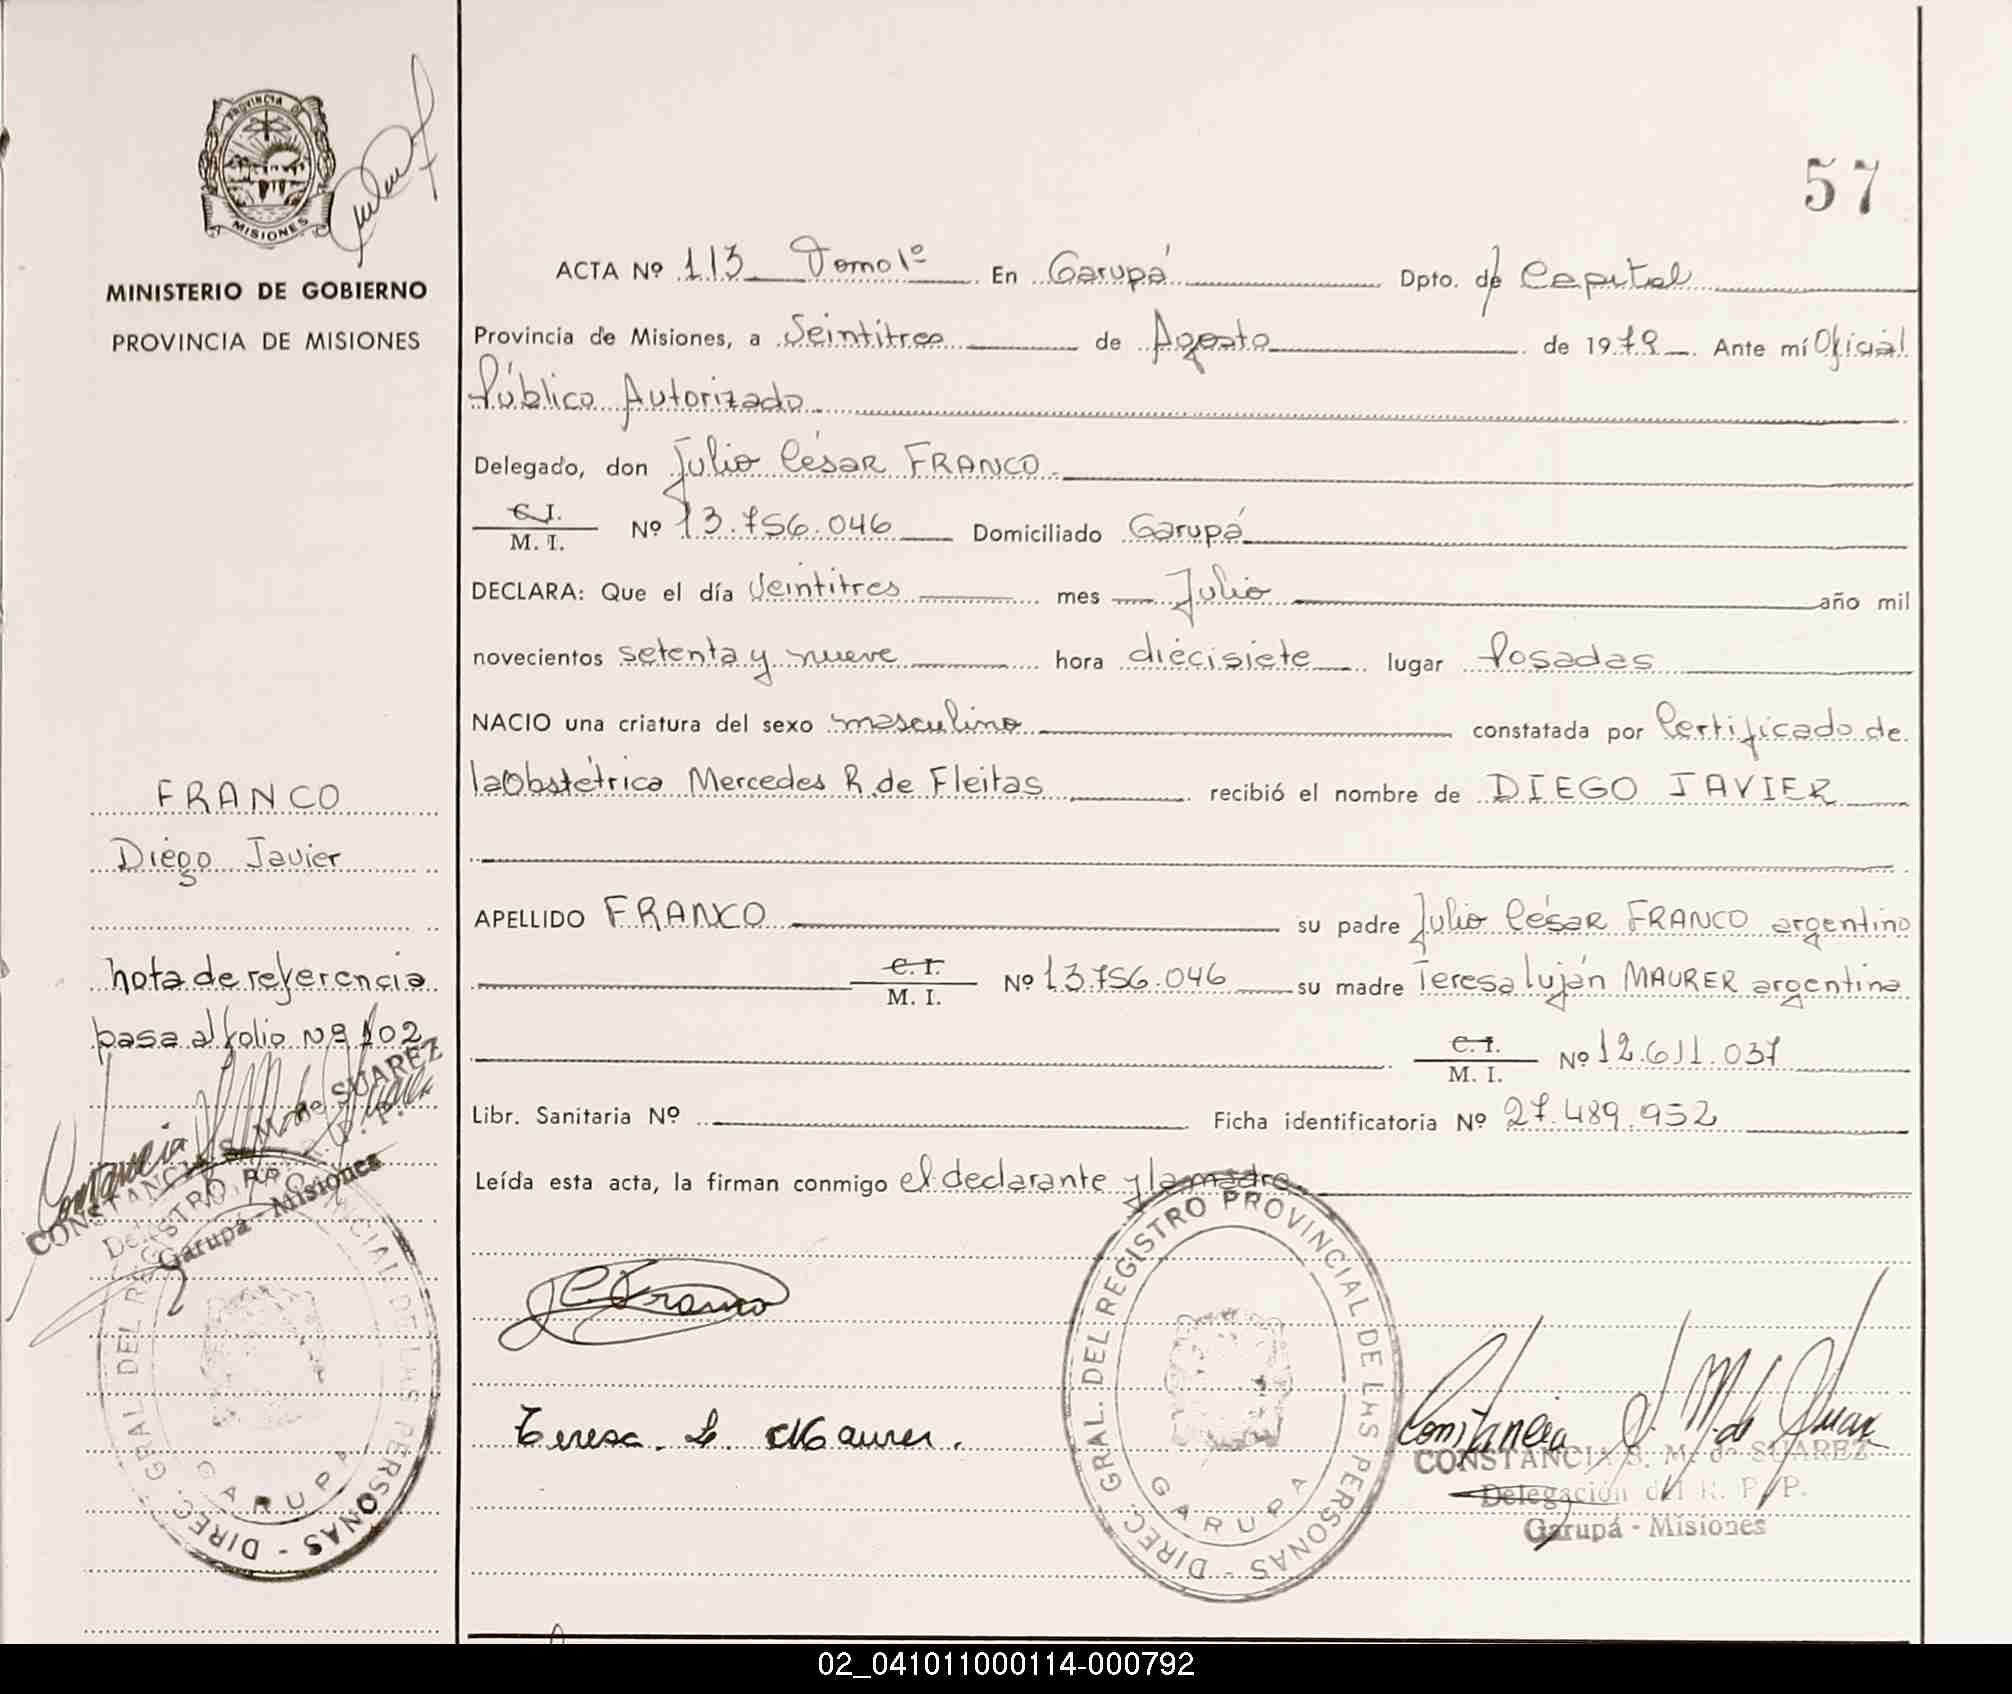 PROVINCIA DE
MISIONES
MINISTERIO DE GOBIERNO
PROVINCIA DE MISIONES
57
ACTA Nº 113 Tomo 1º En Garupá Dpto. de Capital
Provincia de Misiones, a Veintitres de Agosto de 1979. Ante mí Oficial
Público Autorizado
Delegado, don Julio César FRANCO
C. I.
M. I.
Nº 13.756.046 Domiciliado Garupá
DECLARA: Que el día Veintitres mes Julio año mil
novecientos setenta y nueve hora diecisiete lugar Posadas
NACIO una criatura del sexo masculino constatada por Certificado de
la Obstétrica Mercedes R. de Fleitas recibió el nombre de DIEGO JAVIER
APELLIDO FRANCO su padre Julio César FRANCO argentino
C. I.
M. I.
Nº 13.756.046 su madre Teresa Luján MAURER argentina
C. I.
M. I.
Nº 12.611.037
Libr. Sanitaria Nº Ficha identificatoria Nº 27.489.952
Leída esta acta, la firman conmigo el declarante y la madre.
FRANCO
Diego Javier
nota de referencia
pasa al folio Nº 102
CONSTANCIA S. M. de SUAREZ
Garupá - Misiones
DIREC. GRAL. DEL REGISTRO PROVINCIAL DE LAS PERSONAS -
GARUPA
J C. Franco
Teresa. L. Maurer.
DIREC. GRAL. DEL REGISTRO PROVINCIAL DE LAS PERSONAS -
GARUPA
Constancia S. M. de Suarez
CONSTANCIA S. M. de SUAREZ
Delegación del R. P. P.
Garupá - Misiones
02_041011000114-000792